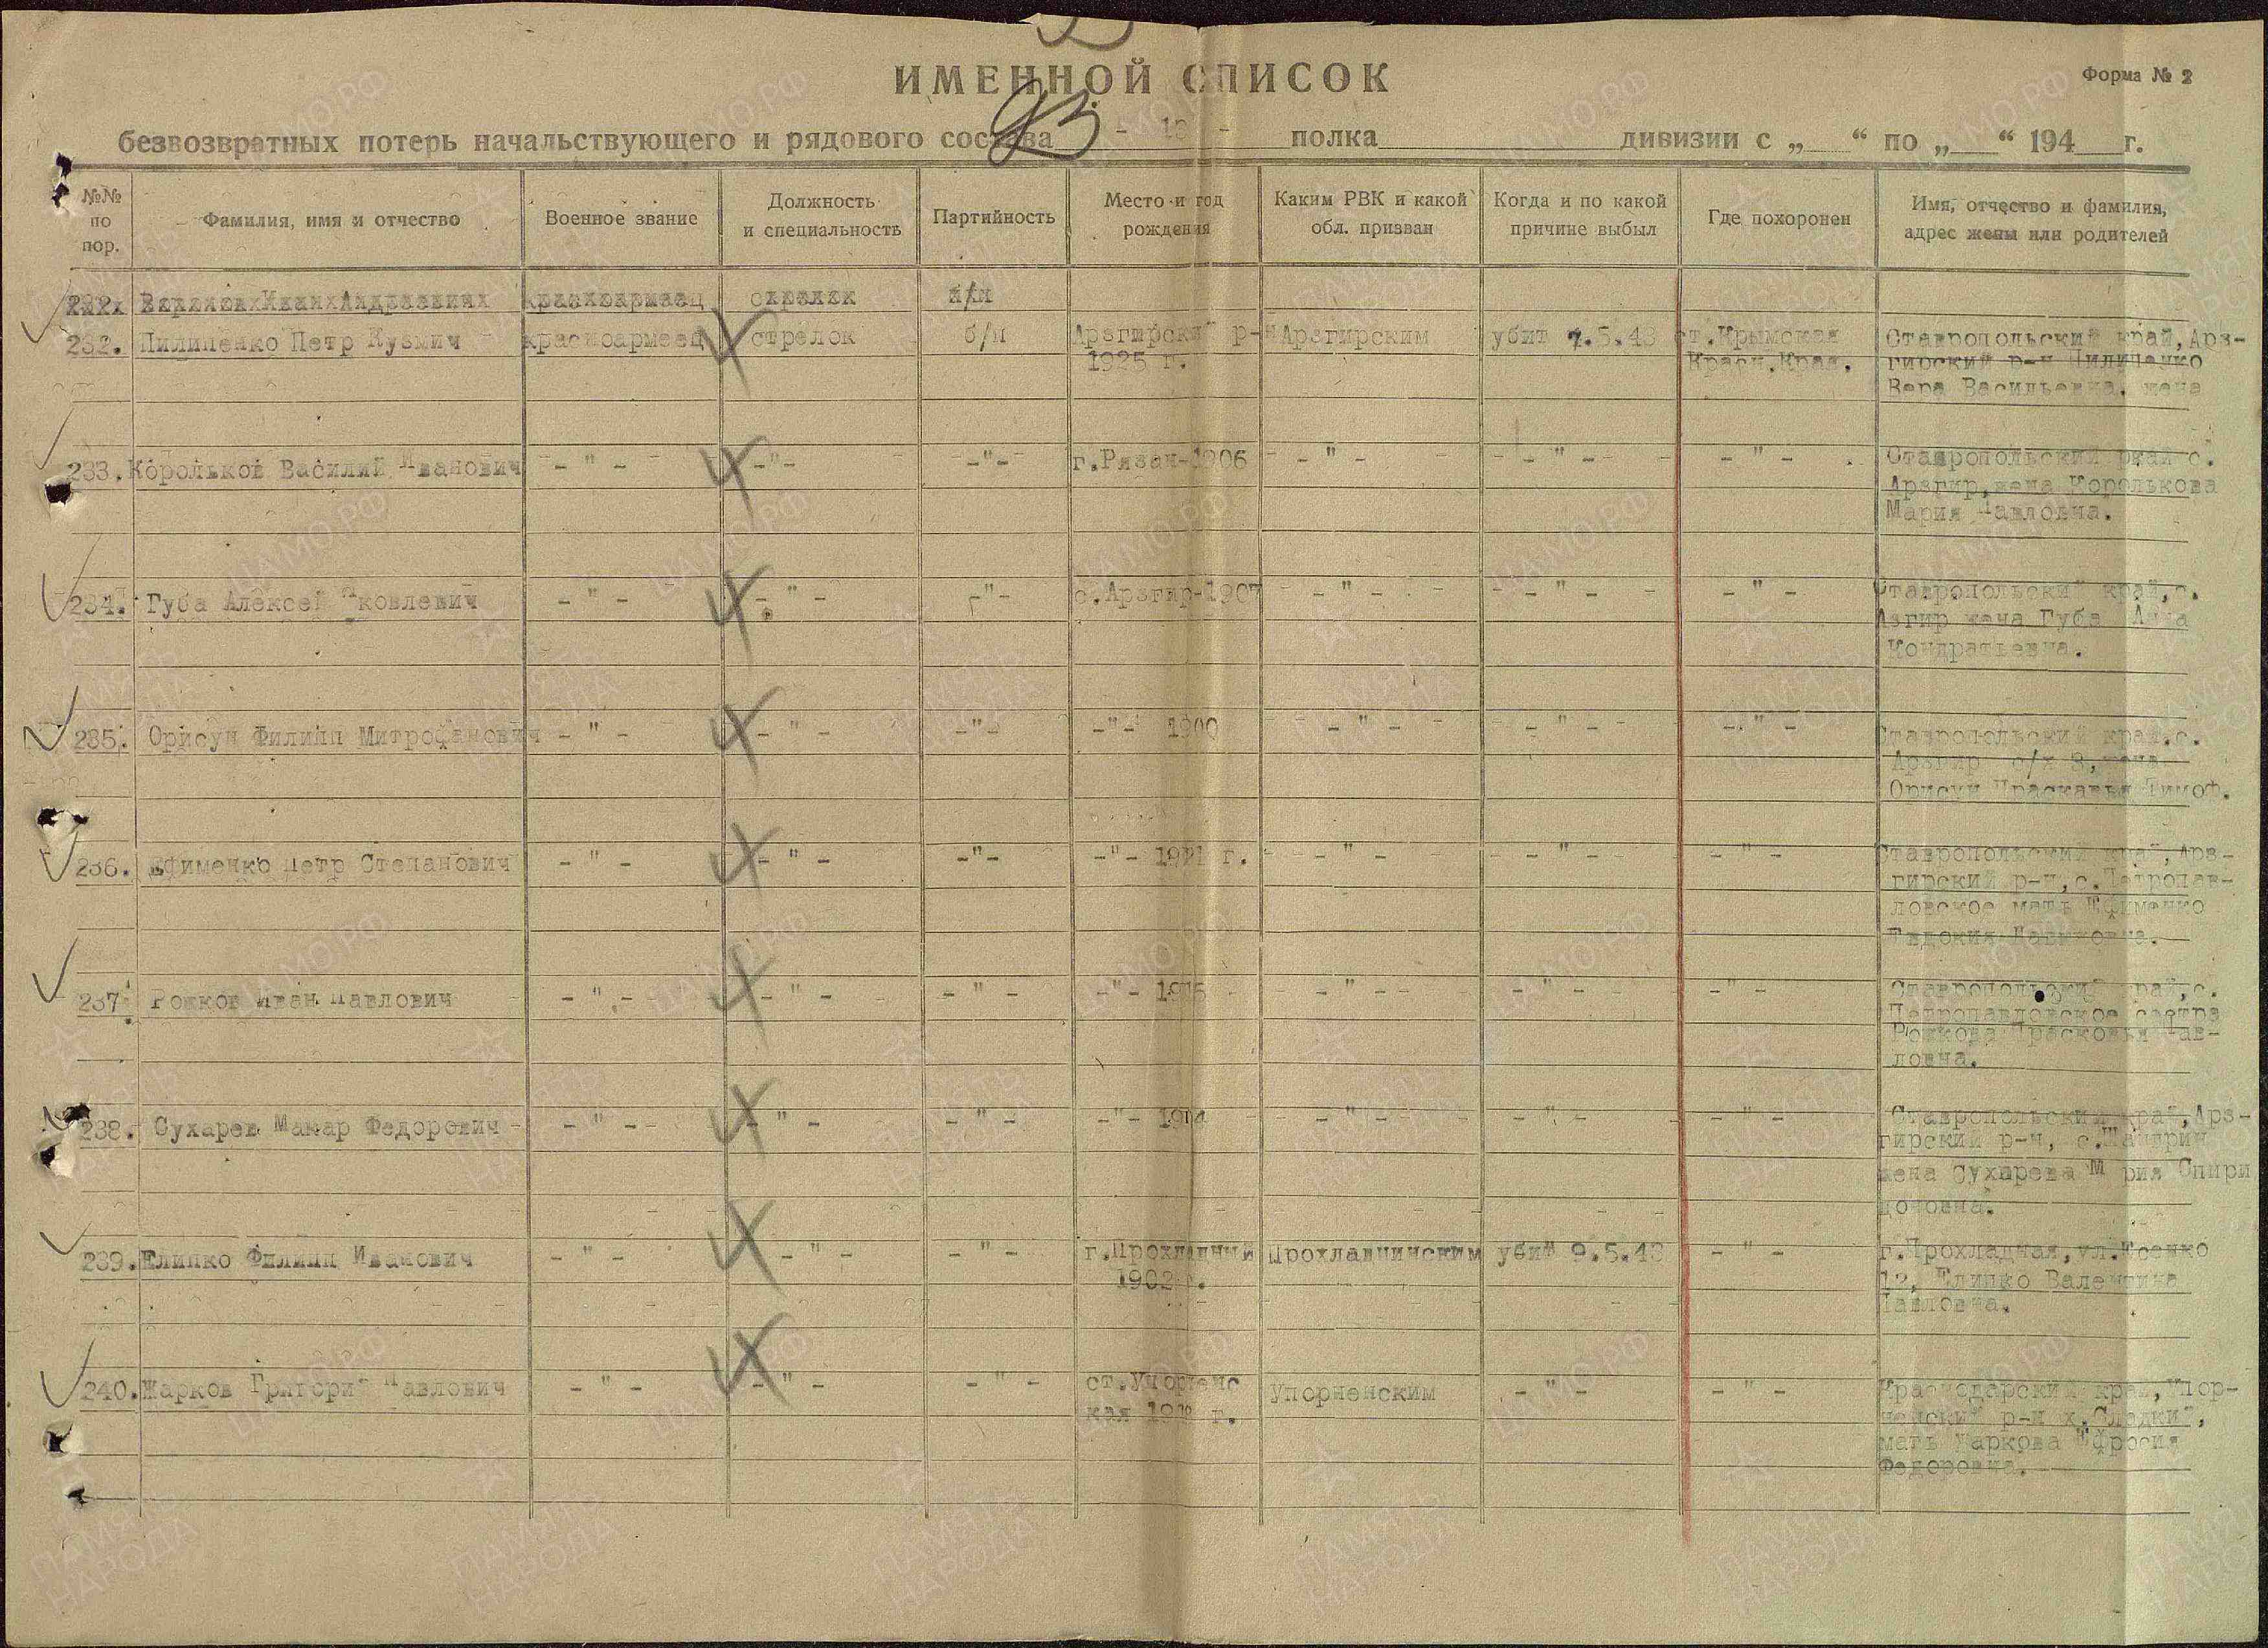 ИМЕННОЙ СПИСОК
Форма № 2
безвозвратных потерь начальствующего и рядового состава - 18 - полка дивизии с „ “ по „ “ 194 г.
93
№№ по пор.
Фамилия, имя и отчество
Военное звание
Должность и специальность
Партийность
Место и год рождения
Каким РВК и какой обл. призван
Когда и по какой причине выбыл
Где похоронен
Имя, отчество и фамилия, адрес жены или родителей
232. Пилипенко Петр Кузмич красноармеец стрелок б/п Арзгирский р-н Арзгирским убит 7.5.43 ст.Крымская Ставропольский край, Арз-
1925 г. Красн.Края. гирский р-н Пилипенко
Вера Васильевна, жена
233. Корольков Василий Иванович - " - -"- -"- г.Рязан-1906 - " - - " - - " - Ставропольский с.
Арзгир, жена Королькова
Мария Павловна.
234. Губа Алексей Яковлевич - " - - " - -"- с.Арзгир-1907 - " - - " - - " - Ставропольский край, с.
Азгир жена Губа Анна
Кондратьевна.
235. Орисун Филипп Митрофанович - " - - " - -"- -"- 1900 - " - - " - - " - Ставропольский край, с.
Арзгир с/х 8, жена
Орисун Праскавья Тимоф.
236. Ефименко Петр Степанович - " - - " - -"- -"- 1921 г. - " - - " - - " - Ставропольский край, Арз-
гирский р-н, с.Петропав-
ловское мать Ефименко
Евдокия
237. Рожков Иван Павлович - " - - " - - " - -"- - " - - " - -"- Ставропольский край, с.
Петропавловское сестра
Рожкова Прасковья Пав-
ловна.
238. Сухарев Макар Федорович - " - - " - - " - -"- 1914 - " - - " - - " - Ставропольский край, Арз-
гирский р-н, с.
жена Сухарева М рия Спири
доновна.
239. Елипко Филипп Иванович - " - - " - - " - г.Прохладный Прохладнинским убит 9.5.43 - " - г.Прохладная, ул.
1902 г. 12, Елипко Валентина
Павловна.
240. Жарков Григорий Павлович - " - - " - - " - ст.Упорненс Упорненским - " - - " - Краснодарский край, Упор-
кая г. ненский р-н х.Сладкий,
мать Жаркова Ефросия
Федоровна.